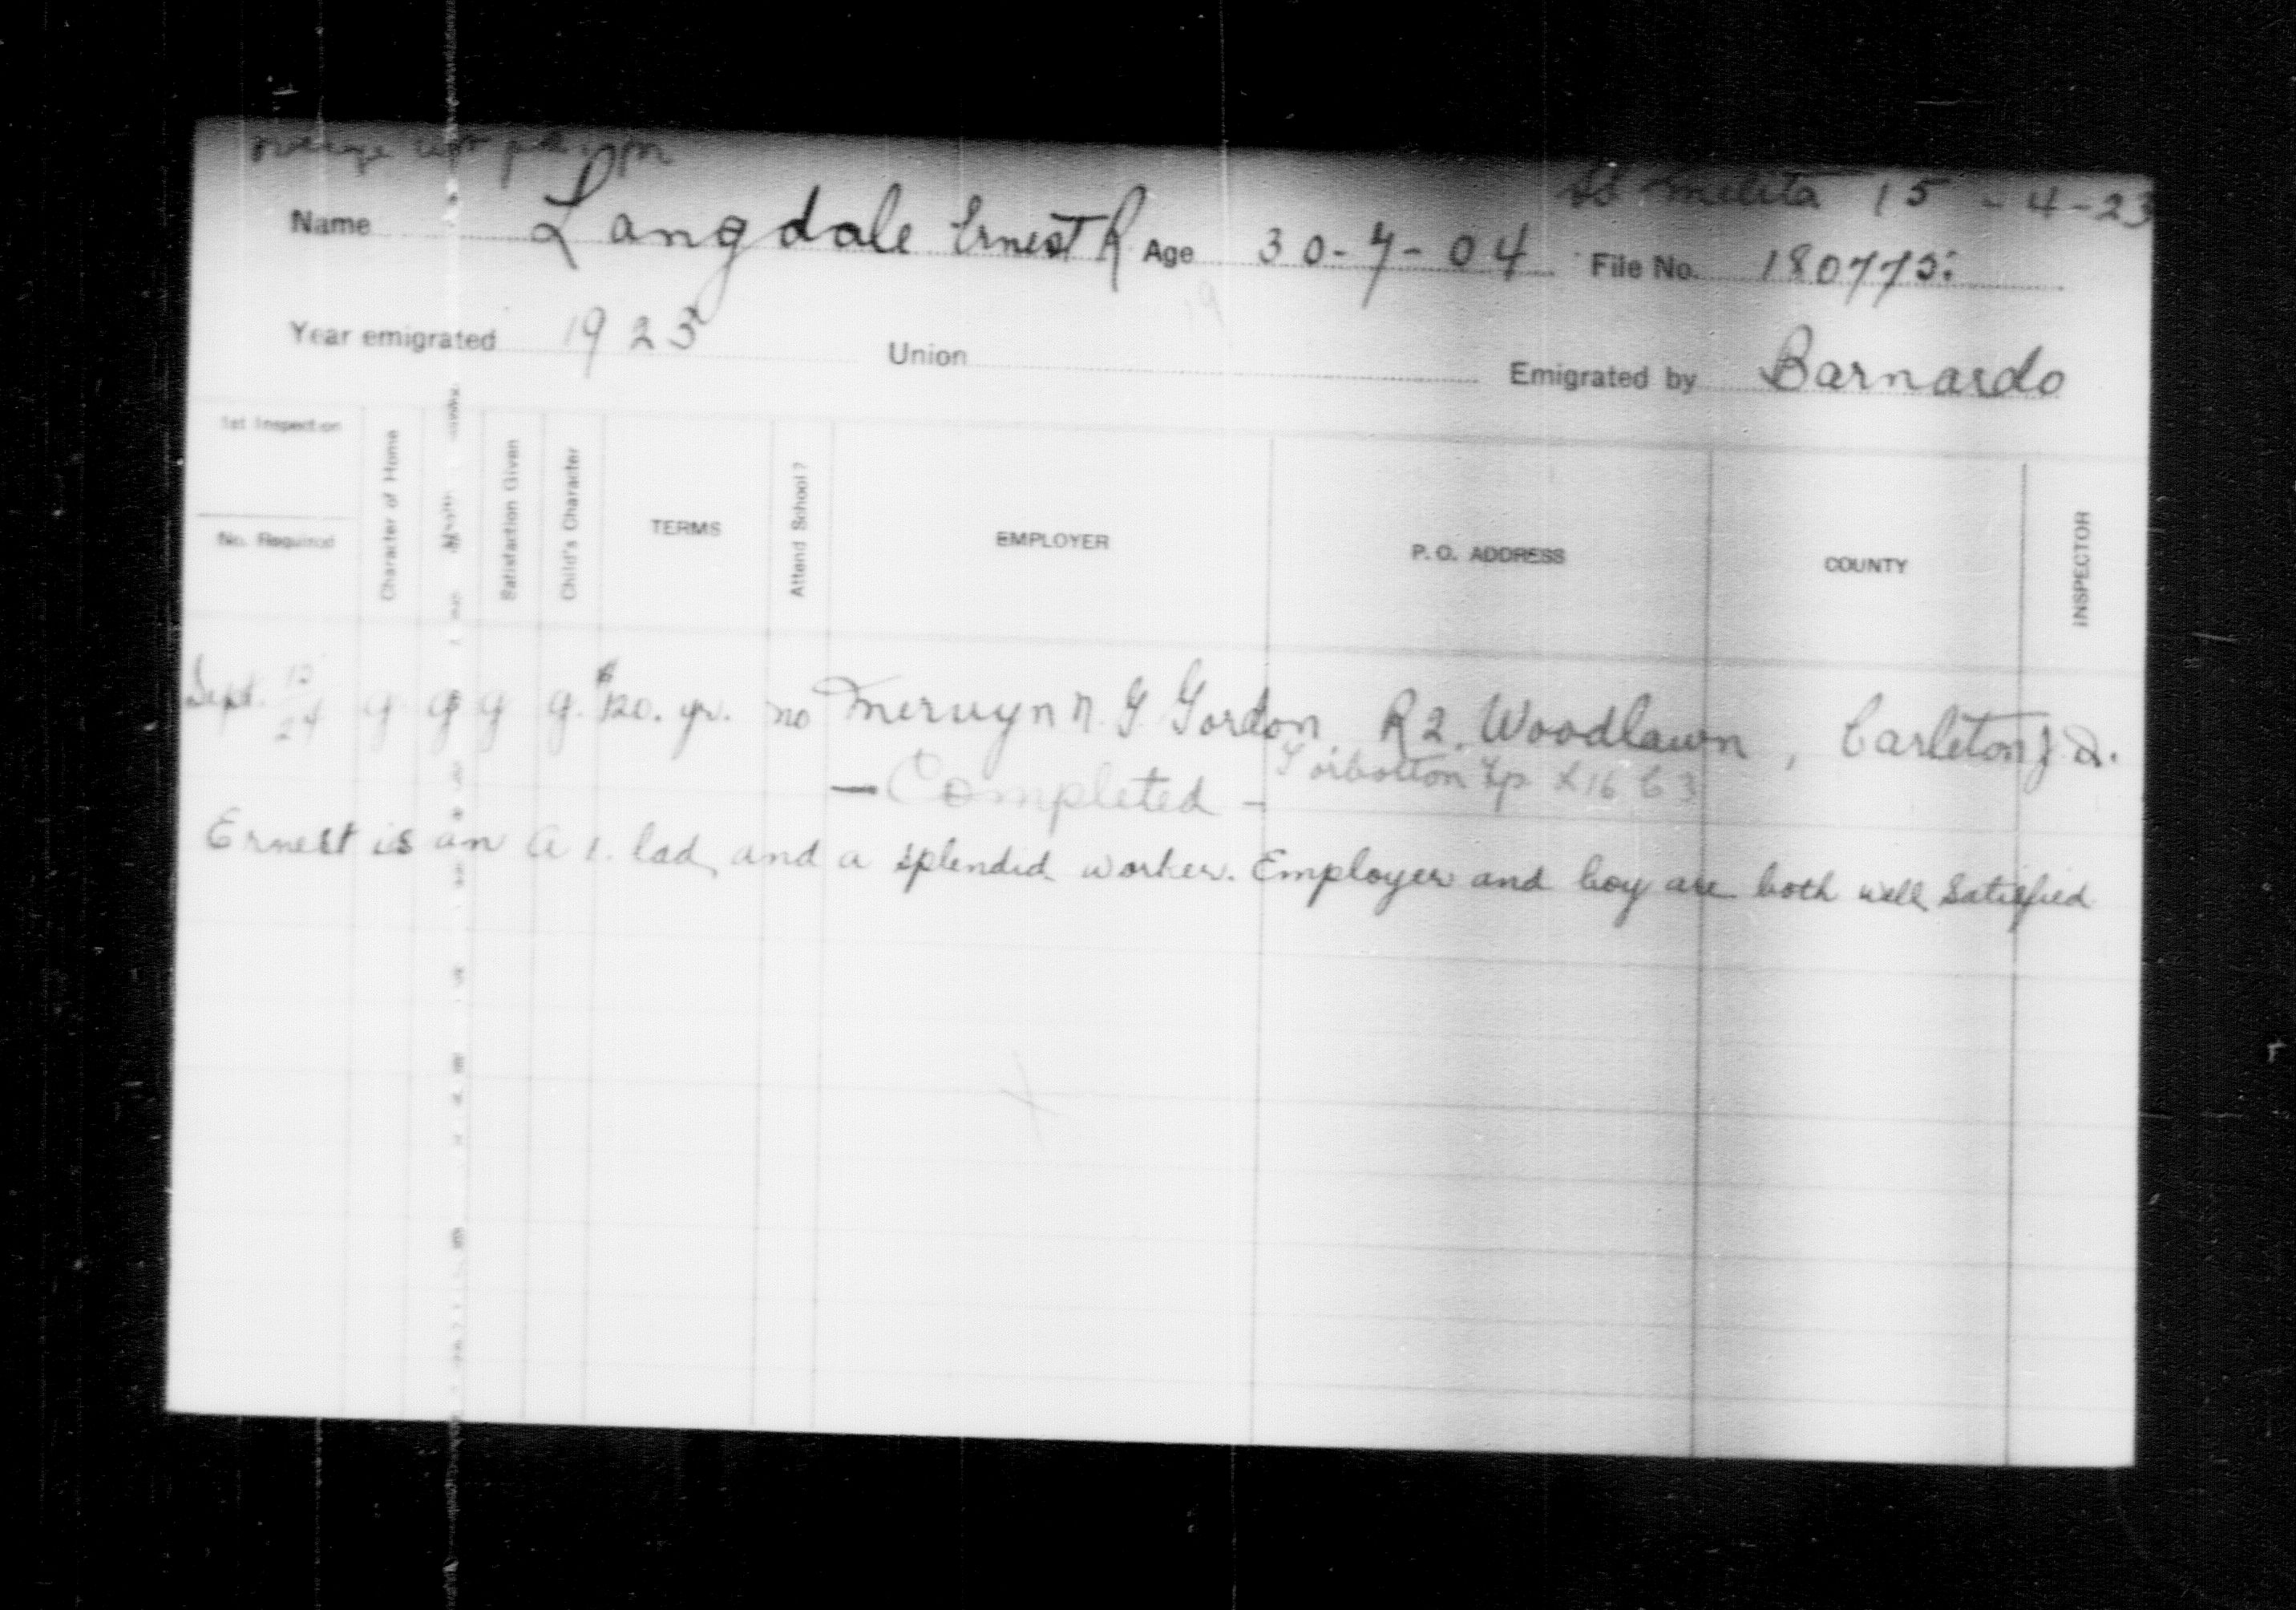 SS Melita 15-4-23
Name Langdale Ernest R Age 30-7-04 File No. 180775
Year emigrated 1923 Union Emigrated by Barnardo
1st Inspection
No. Required
Character of Home
Health
Satisfaction Given
Child's Character
TERMS
Attend School?
EMPLOYER
P. O. ADDRESS
COUNTY
INSPECTOR
Sept. 12/24 g g g g. $120. yr. no Mervyn N. G. Gordon R2. Woodlawn, Carleton J.D.
- Completed - Torbolton Tp L16 C3
Ernest is an A 1. lad, and a splendid worker. Employer and boy are both well satisfied